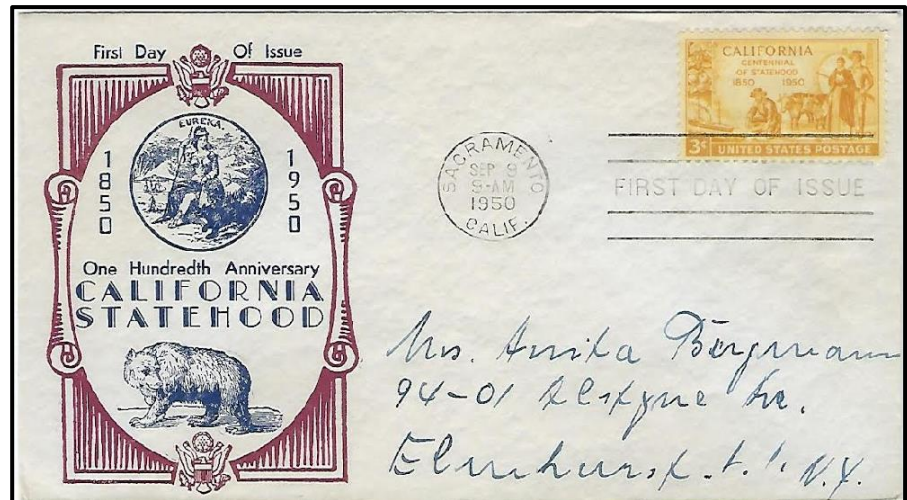 First Day Of Issue
EUREKA.
1850
1950
One Hundredth Anniversary
CALIFORNIA
STATEHOOD
SACRAMENTO
SEP 9
9-AM
1950
CALIF.
CALIFORNIA
CENTENNIAL
OF STATEHOOD
1850 1950
3¢ UNITED STATES POSTAGE
FIRST DAY OF ISSUE
Mrs. Anita Bergmann
94-01 Alstyne Av.
Elmhurst. L.I. N.Y.